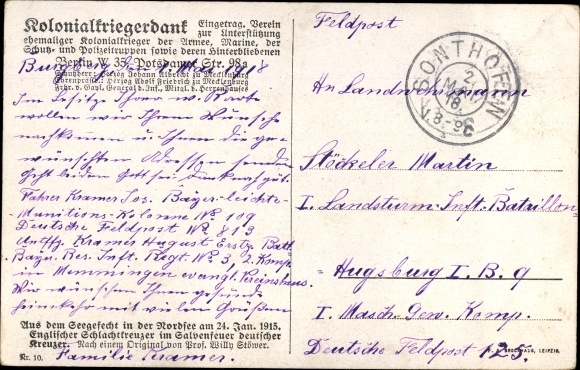 Kolonialkriegerdank Eingetrag. Verein
zur Unterstützung
ehemaliger Kolonialkrieger der Armee, Marine, der
Schutz- und Polizeitruppen sowie deren Hinterbliebenen
Berlin W. 35, Potsdamer Str. 98a
Schutzherr: Herzog Johann Albrecht zu Mecklenburg
Ehrenpräses: Herzog Adolf Friedrich zu Mecklenburg
Frhr. v. Gayl, General d. Inf., Mitgl. d. Herrenhauses
Im Besitze Ihrer w. Karte
wollen wir Ihrem Wunsche
nachkommen u. Ihnen die ge-
wünschten Adressen senden
Geht beiden Gott sei dank noch gut.
Fahrer Kramer Jos. Bayer. leichte
Munitions-Kolonne No. 109
Deutsche Feldpost No. 813
Kramer August Ersatz Batl.
Bayer. Res. Inft. Regt. No. 3, 2. Komp.
in Memmingen evangl. Vereinshaus.
Wir wünschen Ihnen gesunde
Heimkehr mit vielen Grüßen
Familie Kramer.
Aus dem Seegefecht in der Nordsee am 24. Jan. 1915.
Englischer Schlachtkreuzer im Salvenfeuer deutscher
Kreuzer. Nach einem Original von Prof. Willy Stöwer.
Nr. 10.
Feldpost
SONTHOFEN
2. MAI 18
V. 8-9
Hn Landwehrmann
Stöckeler Martin
I. Landsturm-Inft. Bataillon
Augsburg I. B. 9
I. Masch. Gew. Komp.
Deutsche Feldpost 125.
BROCKHAUS, LEIPZIG.